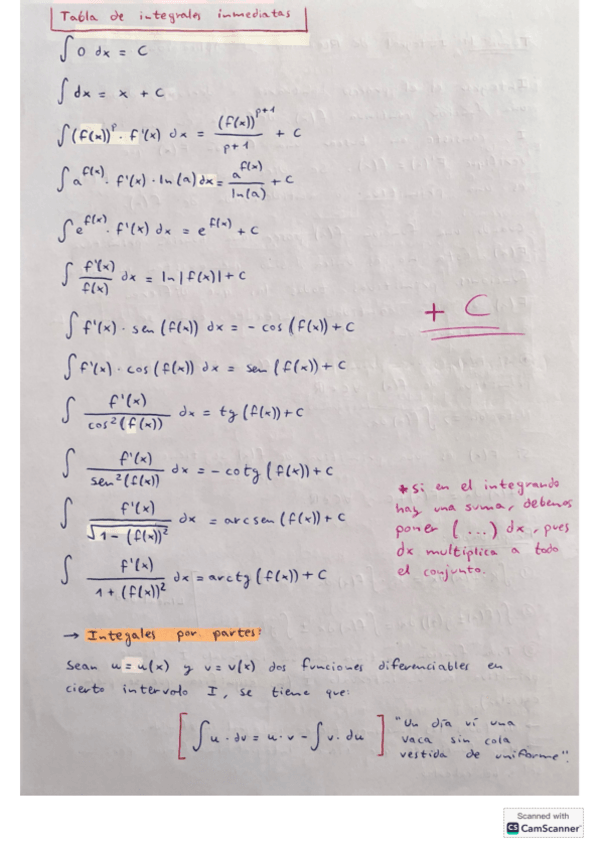 Tabla de integrales inmediatas
∫ 0 dx = C
∫ dx = x + C
∫ (f(x))^p · f'(x) dx = (f(x))^(p+1) / (p+1) + C
∫ a^(f(x)) · f'(x) · ln(a) dx = a^(f(x)) / ln(a) + C
∫ e^(f(x)) · f'(x) dx = e^(f(x)) + C
∫ f'(x) / f(x) dx = ln|f(x)| + C
+ C
∫ f'(x) · sen (f(x)) dx = - cos (f(x)) + C
∫ f'(x) · cos (f(x)) dx = sen (f(x)) + C
∫ f'(x) / cos²(f(x)) dx = tg (f(x)) + C
∫ f'(x) / sen²(f(x)) dx = - cotg (f(x)) + C
∫ f'(x) / √(1 - (f(x))²) dx = arcsen (f(x)) + C
∫ f'(x) / (1 + (f(x))²) dx = arctg (f(x)) + C
* Si en el integrando
hay una suma, debemos
poner (...) dx, pues
dx multiplica a todo
el conjunto.
→ Integales por partes:
Sean u = u(x) y v = v(x) dos funciones diferenciables en
cierto intervalo I, se tiene que:
[∫ u · dv = u · v - ∫ v · du]
"Un día ví una
vaca sin cola
vestida de uniforme".
Scanned with
CS CamScanner